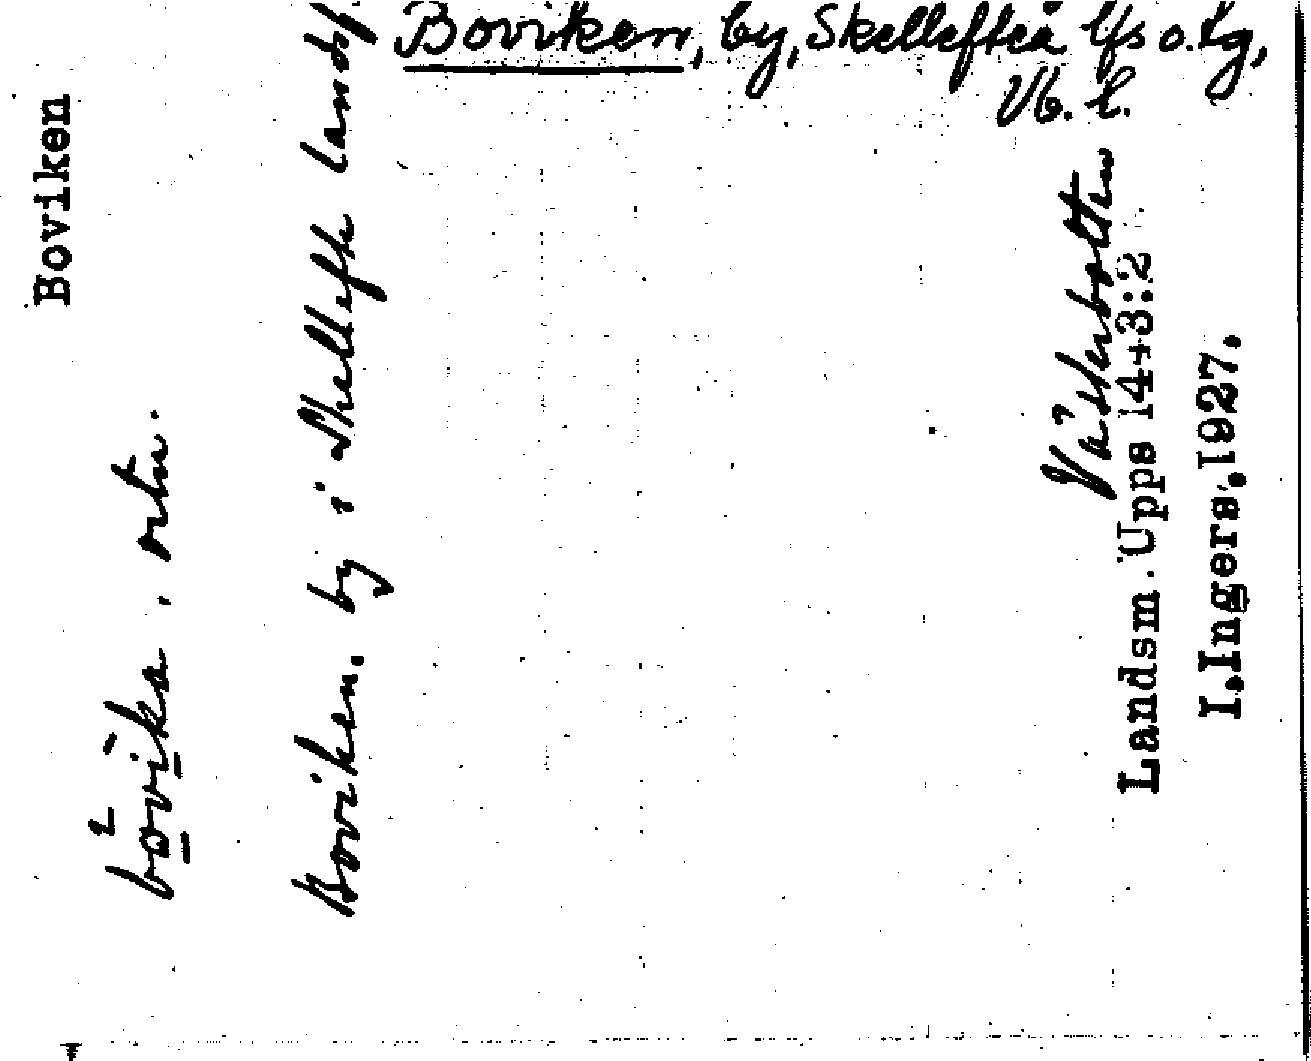 Boviken, by, Skellefteå lfs o. tg,
Vb. l.
Boviken
bovika, ortn.
Boviken. by i Skellefte landsf
Västerbotten
Landsm. Upps 143:2
I. Ingers, 1927.